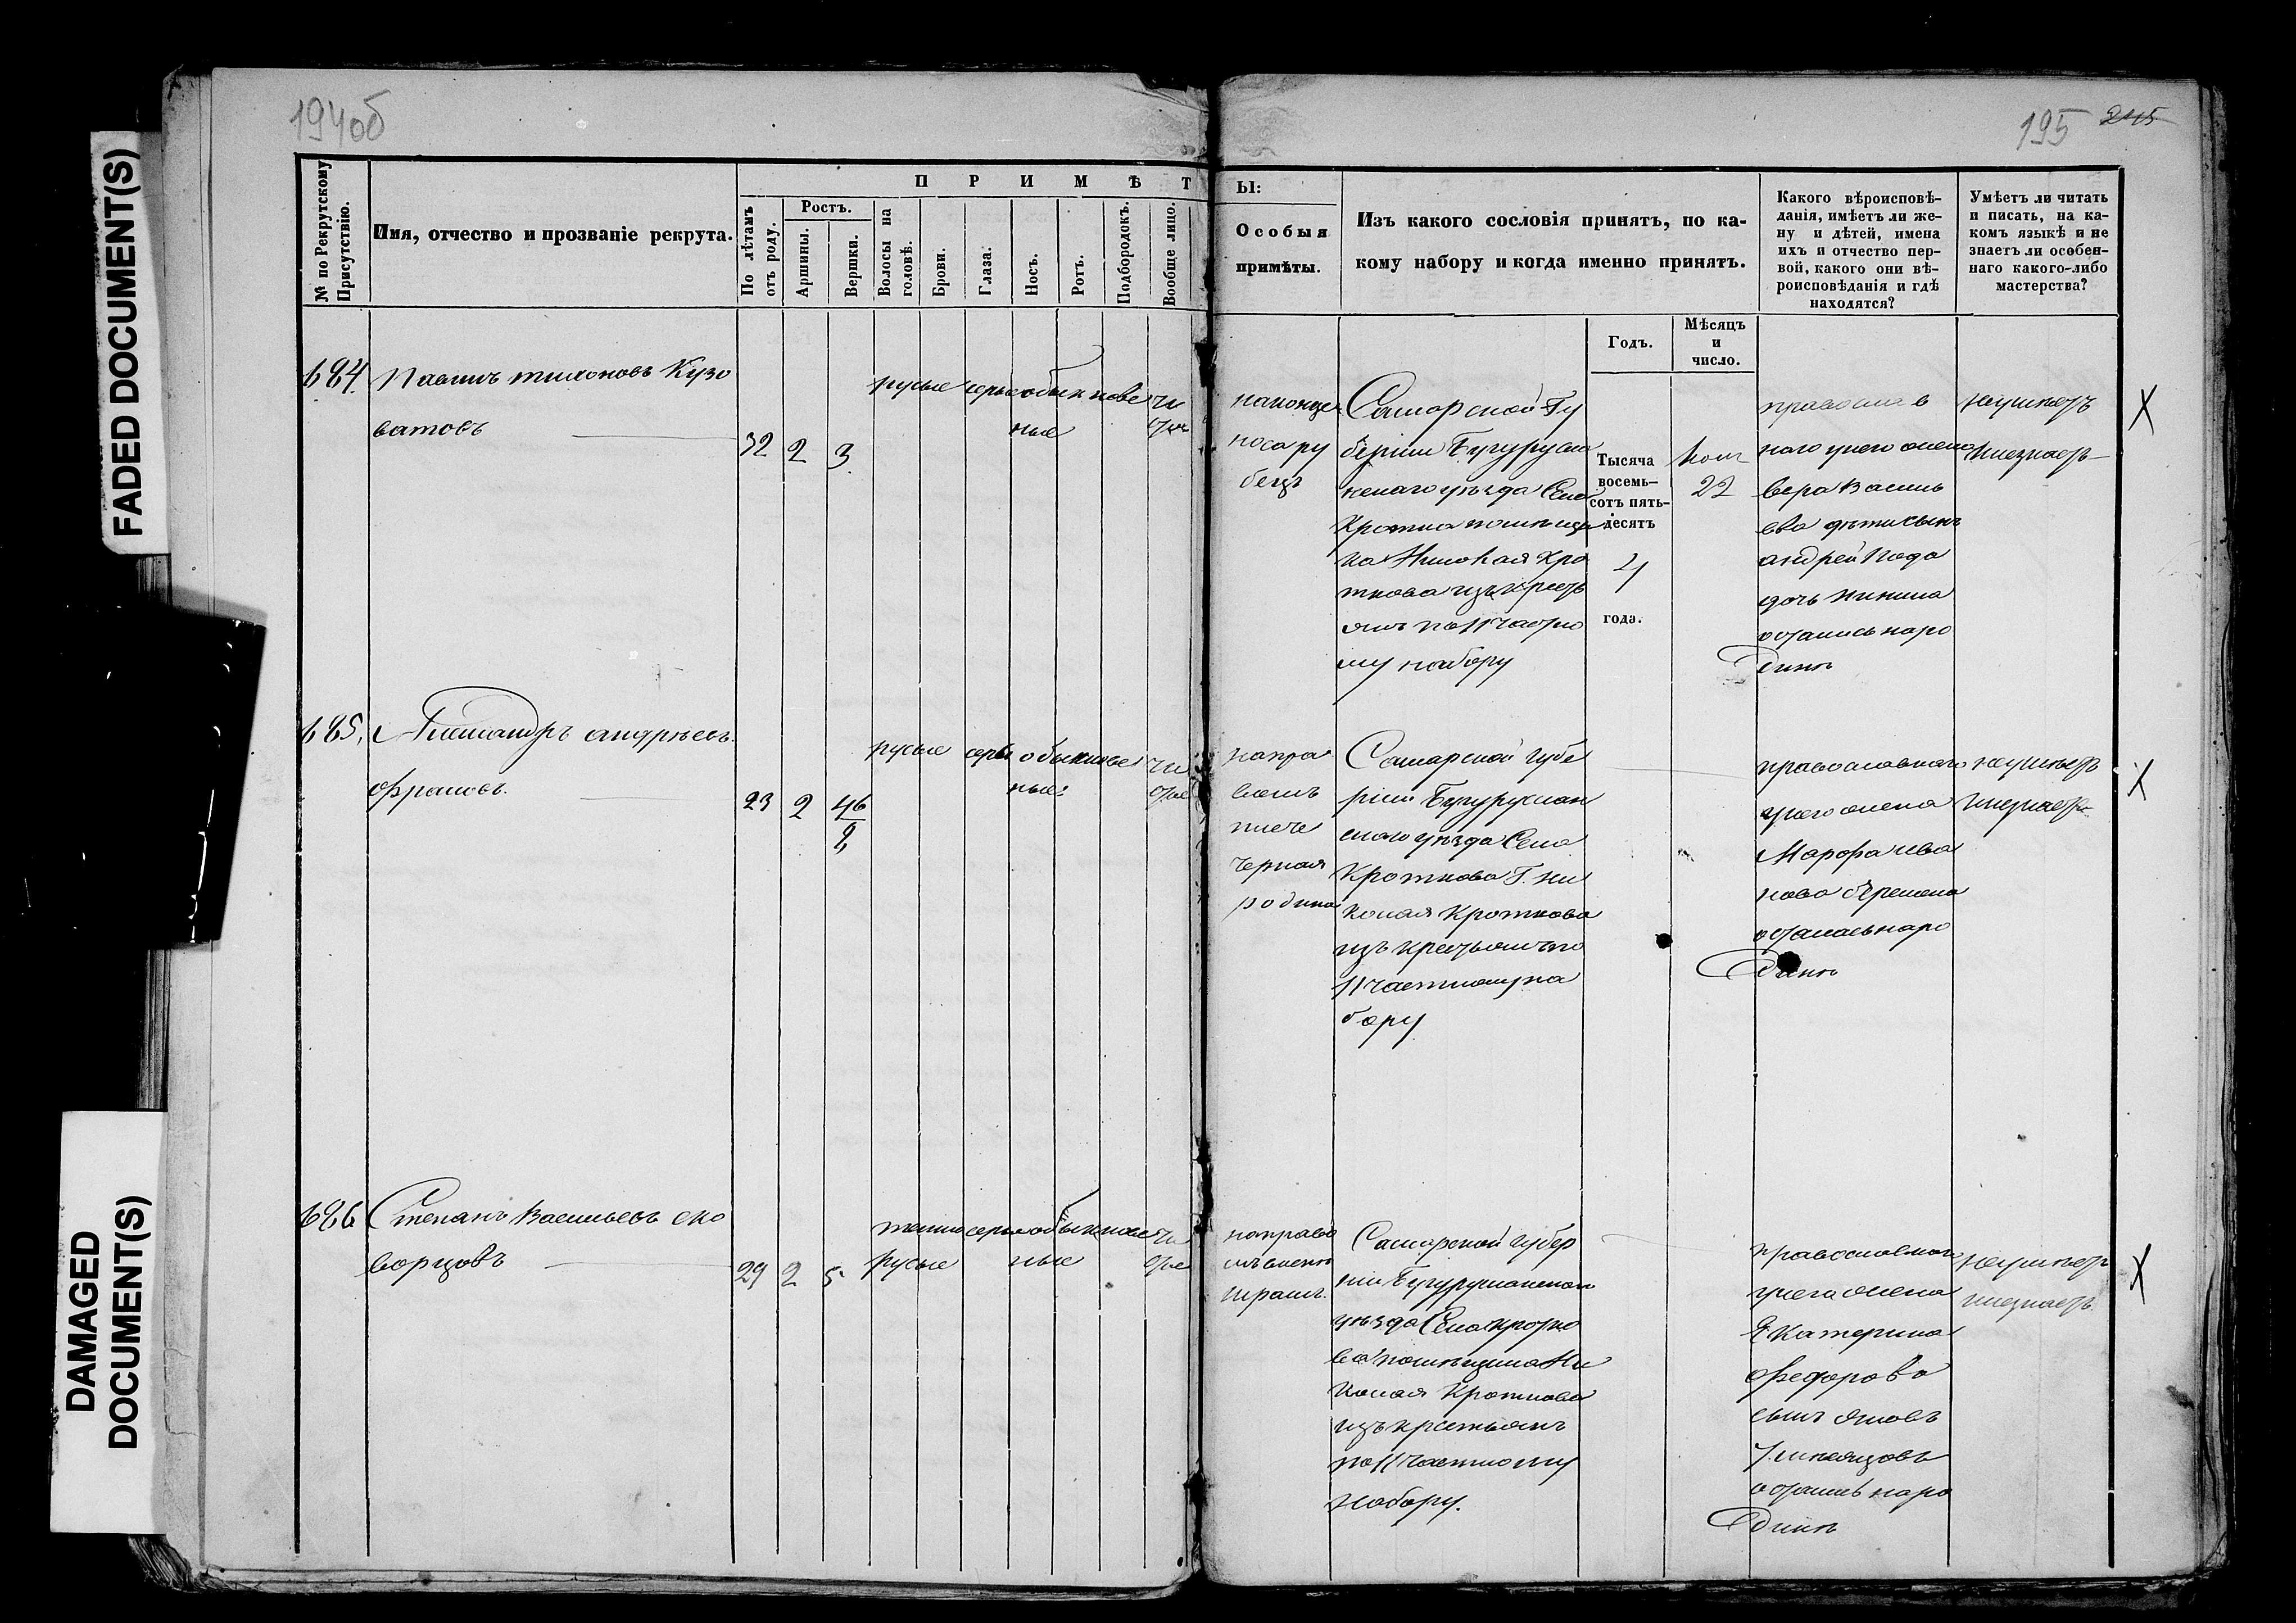 FADED DOCUMENT(S)
DAMAGED
DOCUMENT(S)
194об
195 245
№ по Рекрутскому
Присутствію.
Имя, отчество и прозваніе рекрута.
ПРИМѢТ
Ы:
По лѣтамъ
отъ роду.
Ростъ.
Аршины.
Вершки.
Волосы на
головѣ.
Брови.
Глаза.
Носъ.
Ротъ.
Подбородокъ.
Вообще лицо.
Особыя
примѣты.
Изъ какого сословія принятъ, по ка-
кому набору и когда именно принятъ.
Годъ.
Мѣсяцъ
и
число.
Какого вѣроисповѣ-
данія, имѣетъ ли же-
ну и дѣтей, имена
ихъ и отчество пер-
вой, какого они вѣ-
роисповѣданія и гдѣ
находятся?
Умѣетъ ли читать
и писать, на ка-
комъ языкѣ и не
знаетъ ли особен-
наго какого-либо
мастерства?
684.
Павилъ тихоновъ Кузо
ватовъ
32 2 3
русые серые обыкнове
ные
чи
стое
наконце
носа ру
бецъ
Самарской Гу
берніи Бугурусла
нскаго уѣзда Села
Кроткова помѣщи
ка Николая Кро
ткова изъ крест
янъ по 11 частно
му набору
Тысяча
восемь-
сотъ пять-
десятъ
4
года.
22
православ
наго унего жена
вера Василь
ева дѣти сынъ
андрей 1 года
дочь
остались наро
динѣ
неумѣетъ
инезнаетъ
X
685.
Александръ андрѣевъ
фроловъ.
23 2 4 6/8
русые серы обыкнове
ные
чи
стое
направомъ
плече
черная
родинка
Самарской губе
рніи Бугуруслан
скаго уѣзда Села
Кроткова Г. Ни
колая Кроткова
изъ крестьянъ по
11 частному на
бору
православнаго
унего жена
Марфа Ива
нова беремена
осталась наро
динѣ
неумѣетъ
инезнаетъ
X
686
Степанъ Васильевъ ско
ворцовъ
29 2 5
темно серые обыкнове
русые ные
чи
стое
направо
шрамъ.
Самарской губер
ніи Бугурусланскаго
уѣзда Села крот
ва помѣщика Ни
колая Кроткова
изъ крестьянъ
по 11 частному
набору.
православнаго
унего жена
Екатерина
федорова
сынъ яковъ
7 месяцовъ
остались наро
динѣ
неумѣетъ
инезнаетъ
X